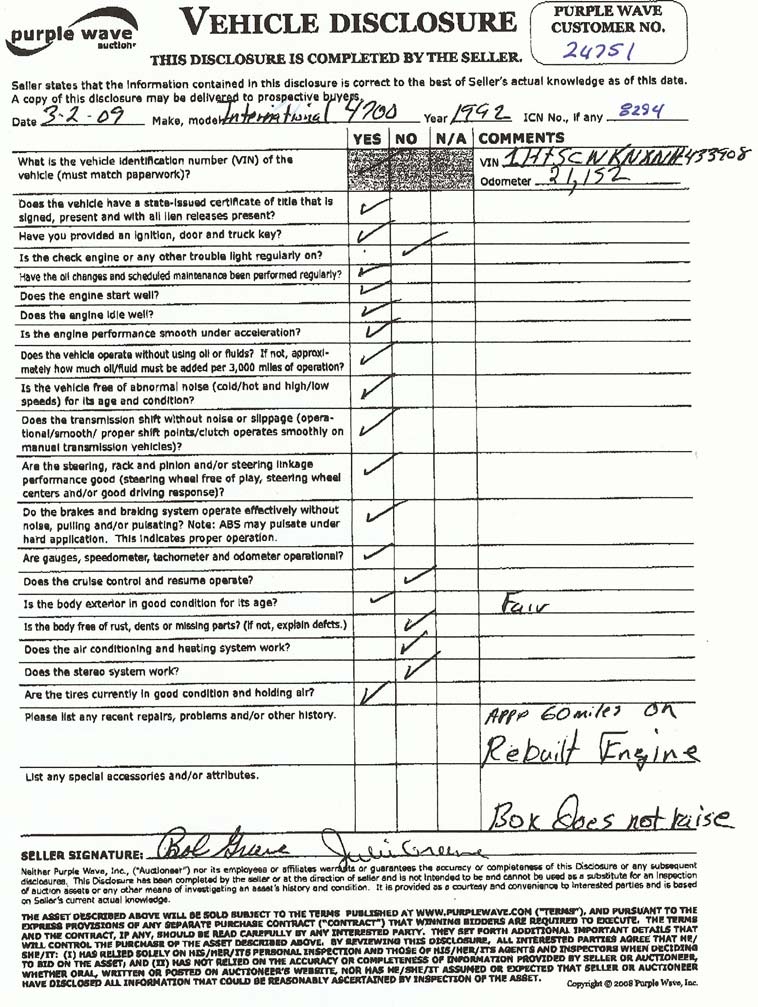 purple wave
auction
VEHICLE DISCLOSURE
THIS DISCLOSURE IS COMPLETED BY THE SELLER.
PURPLE WAVE
CUSTOMER NO.
24751
Seller states that the information contained in this disclosure is correct to the best of Seller's actual knowledge as of this date.
A copy of this disclosure may be delivered to prospective buyers.
Date 3-2-09 Make, model International 4700 Year 1992 ICN No., if any 8294
YES NO N/A COMMENTS
What is the vehicle identification number (VIN) of the
vehicle (must match paperwork)?
VIN 1HTSCNKNXNH433908
Odometer 21,152
Does the vehicle have a state-issued certificate of title that is
signed, present and with all lien releases present?
Have you provided an ignition, door and truck key?
Is the check engine or any other trouble light regularly on?
Have the oil changes and scheduled maintenance been performed regularly?
Does the engine start well?
Does the engine idle well?
Is the engine performance smooth under acceleration?
Does the vehicle operate without using oil or fluids? If not, approxi-
mately how much oil/fluid must be added per 3,000 miles of operation?
Is the vehicle free of abnormal noise (cold/hot and high/low
speeds) for its age and condition?
Does the transmission shift without noise or slippage (opera-
tional/smooth/ proper shift points/clutch operates smoothly on
manual transmission vehicles)?
Are the steering, rack and pinion and/or steering linkage
performance good (steering wheel free of play, steering wheel
centers and/or good driving response)?
Do the brakes and braking system operate effectively without
noise, pulling and/or pulsating? Note: ABS may pulsate under
hard application. This indicates proper operation.
Are gauges, speedometer, tachometer and odometer operational?
Does the cruise control and resume operate?
Is the body exterior in good condition for its age? Fair
Is the body free of rust, dents or missing parts? (if not, explain defcts.)
Does the air conditioning and heating system work?
Does the stereo system work?
Are the tires currently in good condition and holding air?
Please list any recent repairs, problems and/or other history.
APPP 60 miles on
Rebuilt Engine
List any special accessories and/or attributes.
Box Does not raise
SELLER SIGNATURE: Bob Greene Julie Greene
Neither Purple Wave, Inc., ("Auctioneer") nor its employees or affiliates warrants or guarantees the accuracy or completeness of this Disclosure or any subsequent
disclosures. This Disclosure has been completed by the seller or at the direction of seller and is not intended to be and cannot be used as a substitute for an inspection
of auction assets or any other means of investigating an asset's history and condition. It is provided as a courtesy and convenience to interested parties and is based
on Seller's current actual knowledge.
THE ASSET DESCRIBED ABOVE WILL BE SOLD SUBJECT TO THE TERMS PUBLISHED AT WWW.PURPLEWAVE.COM ("TERMS"), AND PURSUANT TO THE
EXPRESS PROVISIONS OF ANY SEPARATE PURCHASE CONTRACT ("CONTRACT") THAT WINNING BIDDERS ARE REQUIRED TO EXECUTE. THE TERMS
AND THE CONTRACT, IF ANY, SHOULD BE READ CAREFULLY BY ANY INTERESTED PARTY. THEY SET FORTH ADDITIONAL IMPORTANT DETAILS THAT
WILL CONTROL THE PURCHASE OF THE ASSET DESCRIBED ABOVE. BY REVIEWING THIS DISCLOSURE, ALL INTERESTED PARTIES AGREE THAT HE/
SHE/IT: (I) HAS RELIED SOLELY ON HIS/HER/ITS PERSONAL INSPECTION AND THOSE OF HIS/HER/ITS AGENTS AND INSPECTORS WHEN DECIDING
TO BID ON THE ASSET; AND (II) HAS NOT RELIED ON THE ACCURACY OR COMPLETENESS OF INFORMATION PROVIDED BY SELLER OR AUCTIONEER,
WHETHER ORAL, WRITTEN OR POSTED ON AUCTIONEER'S WEBSITE, NOR HAS HE/SHE/IT ASSUMED OR EXPECTED THAT SELLER OR AUCTIONEER
HAVE DISCLOSED ALL INFORMATION THAT COULD BE REASONABLY ASCERTAINED BY INSPECTION OF THE ASSET.
Copyright © 2008 Purple Wave, Inc.